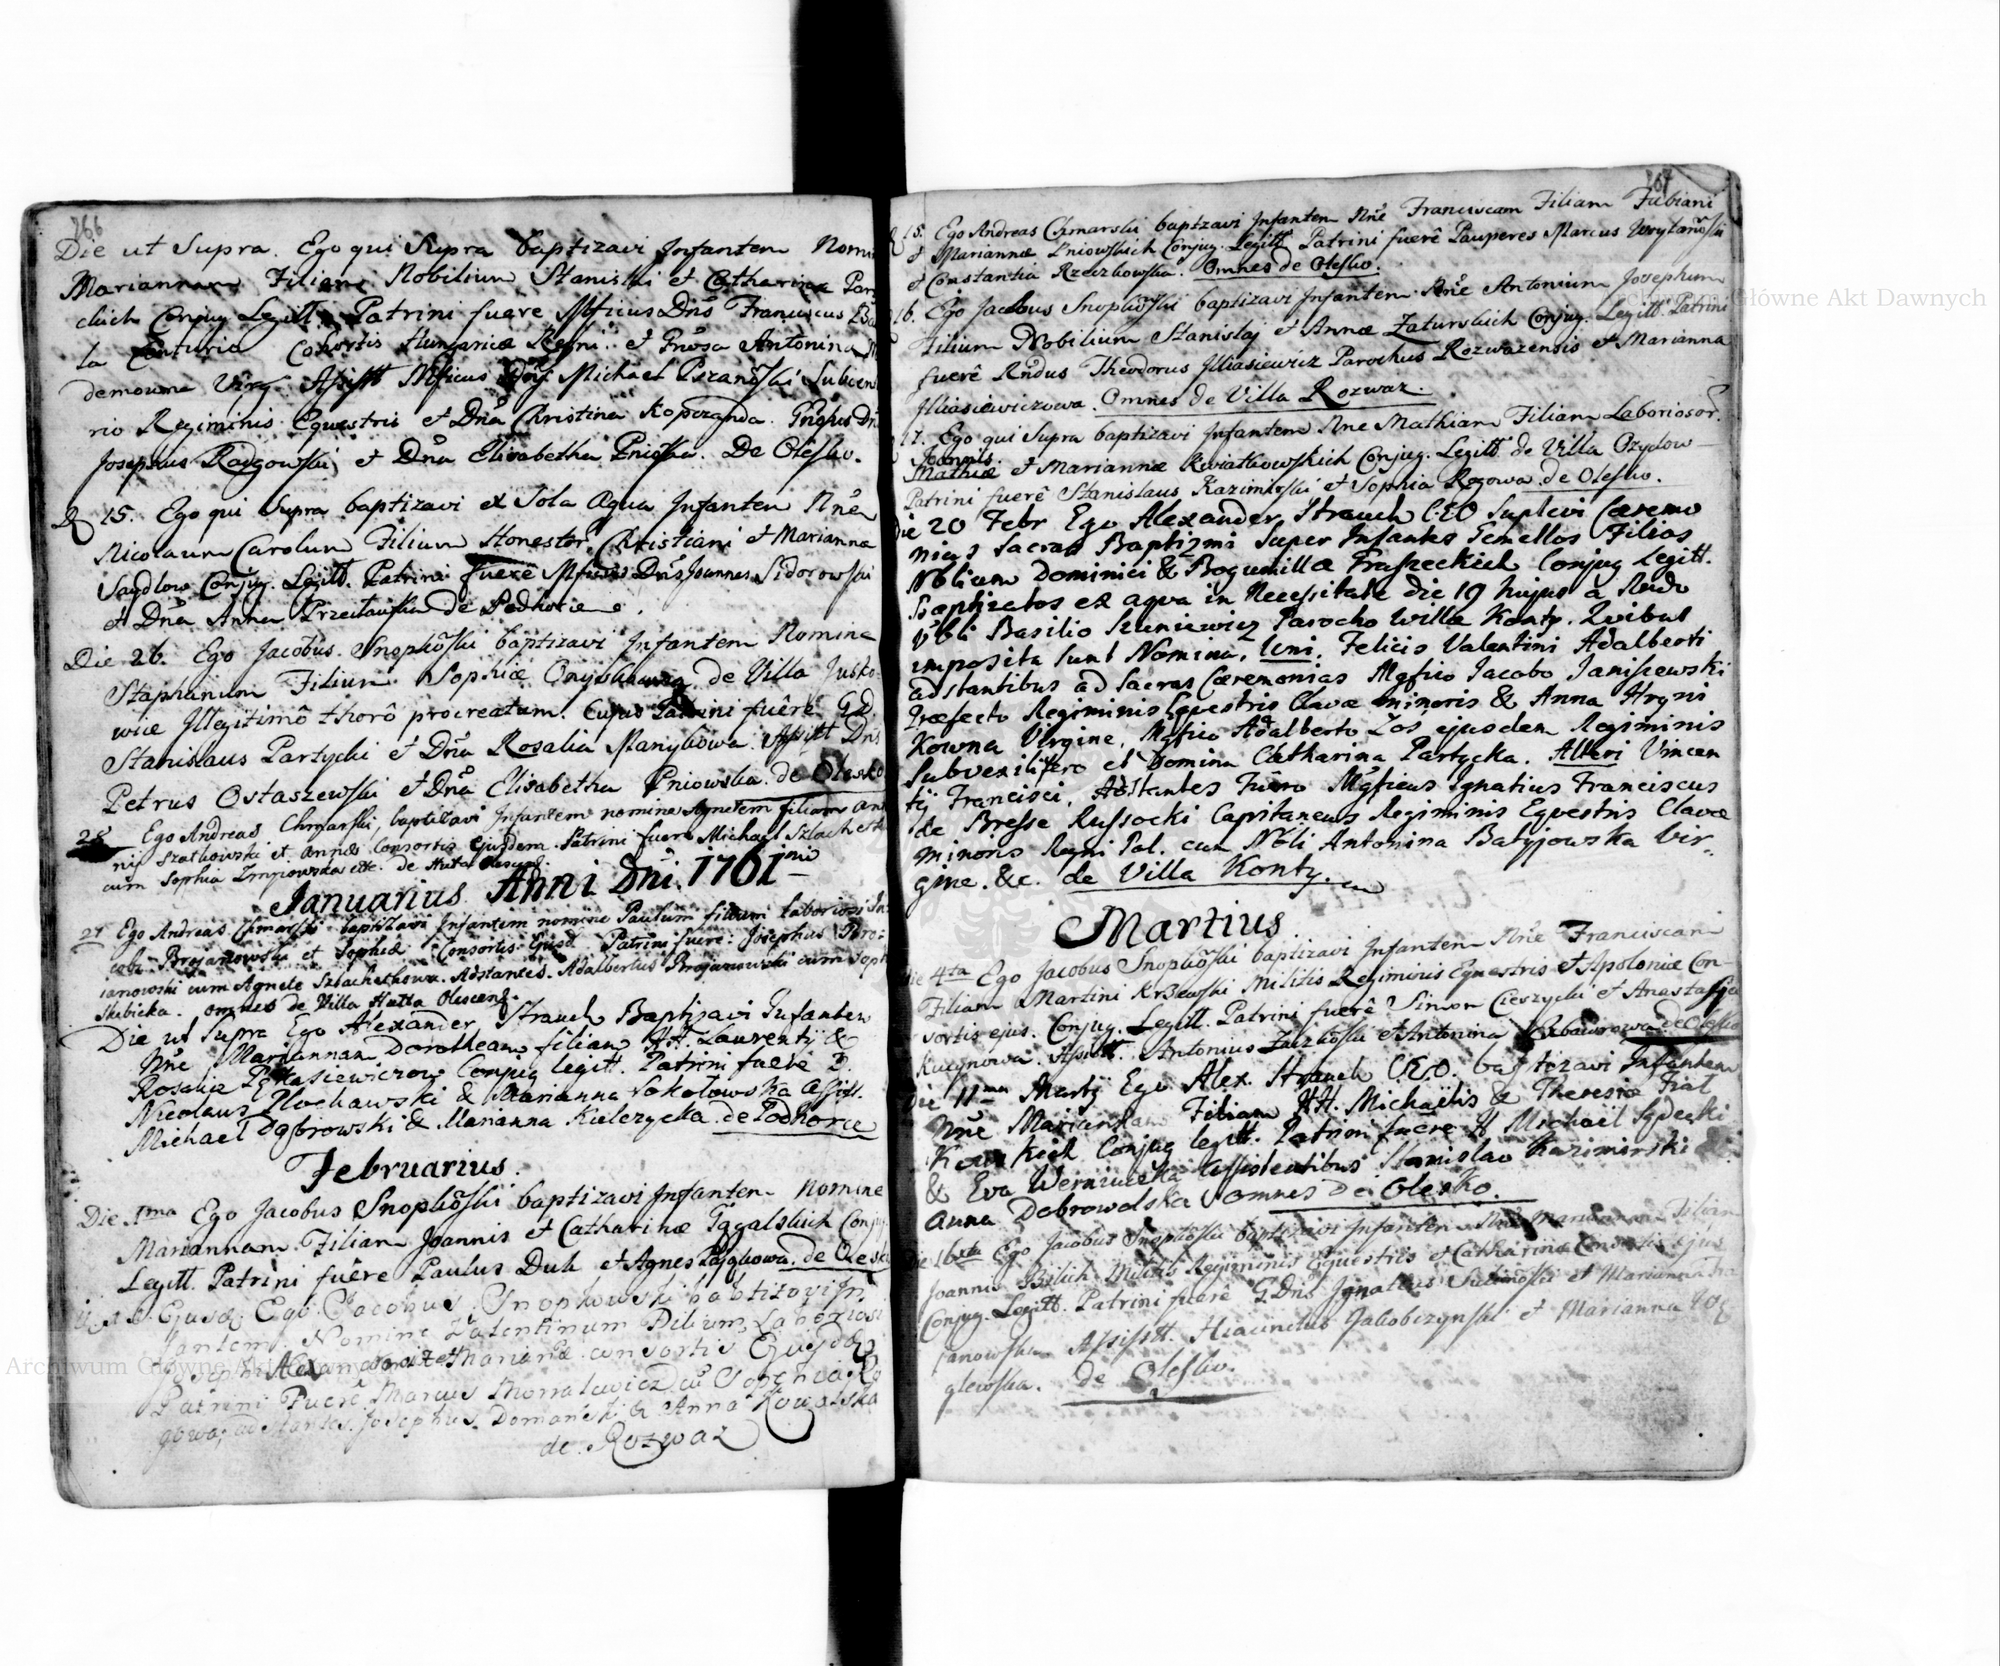 266
Die ut Supra. Ego qui Supra baptizavi Infantem Nomi
Mariannam Filiam Nobilium Stanislai et Catharinæ Par
ckich Conjug. Legitt. Patrini fuere Mficus Dnus Franciscus
la Centuria Cohortis Hungaricæ Regni. et Gnosa Antonina
demowna Virg. Assistt Mficus Dnus Michael Pszanoski Subcen
rio Regiminis Equestris et Dna Christina Gnosus Dn
Josephus Radgowski et Dna Elisabetha Pnioska. De Olesko.
D 15. Ego qui Supra baptizavi ex Sola Aqua Infantem Nne
Nicolaum Carolum Filium Honestor. Christiani et Marianna
Saydlow Conjug. Legitt. Patrini fuere Mficus Dnus Joannes Sidorowski
et Dna Anna Przecławska de Podhorce.
Die 26. Ego Jacobus Snopkoski baptizavi Infantem Nomine
Stephanum Filium Sophiæ de Villa Jusko
wice Illegitimô thorô procreatum. Cujus Patrini fuêre G.D.
Stanislaus Partycki et Dna Rosalia Manykowa. Assistt Dns
Petrus Ostaszewski et Dna Elisabetha Pniowska. de Olesko
28 Ego Andreas Chmarski baptizavi Infantem nomine Agnetem filiam An
nij Szatkowski et Annæ Consortis Ejusdem. Patrini fuere Michael Szlachetk
cum Sophia etc. de Hutta Olescens.
Januarius Anni Dni. 1761mi
27 Ego Andreas Chmarski baptizavi Infantem nomine Paulum filium laboriosi Ja
cobi Brojanowski et Sophiæ Consortis Ejusd. Patrini fuere: Josephus Bro:
ianowski cum Agnete Szlachetkowa. Adstantes. Adalbertus Brojanowski cum Soph
Skibicka. omnes de Villa Hutta Olescens.
Die ut Supra Ego Alexander Strauch Baptizavi Infantem
Nne Mariannam Dorotheam filiam HH. Laurentij &
Rosaliæ Ptkasiewiczow Conjug legitt. Patrini fuere D.
Nicolaus Płochawski & Marianna Sokołowska assistt.
Michael Dąbrowski & Marianna Kielczycka. de Podhorce
Februarius.
Die 1ma Ego Jacobus Snopkoski baptizavi Infantem Nomine
Mariannam Filiam Joannis et Catharinæ Gągalskich Conjug.
Legitt. Patrini fuêre Paulus Duk et Agnes Pasqkowa. de Olesk
Ejusd. Ego Jacobus Snopkowski babtizavi In
fantem Nomine Valentinum Filium Laboriosi
Josephi et Marianæ consortis Ejusdem
Patrini Fuere Marcus Kowalewicz cu Sophia Ro
gowa, adstantes. Josephus Domanski & Anna Kowalska
de Rozwaz
267
15. Ego Andreas Chmarski baptizavi Infantem Nne Franciscam Filiam Fabiani
et Mariannæ Pniowskich Conjug. Legitt Patrini fuerê Pauperes Marcus Woytanoski
et Constantia Rzeczkowska. Omnes de Olesko.
16. Ego Jacobus Snopkoski baptizavi Infantem Nne Antonium Josephum
Filium Nobilium Stanislaj et Annæ Zaturskich Conjug. Legitt. Patrini
fuerê Rndus Theodorus Jlliasiewicz Parochus Rozwazensis et Marianna
Jlliasiewiczowa. Omnes de Villa Rozwaz.
17. Ego qui Supra baptizavi Infantem Nne Mathiam Filiam Laboriosor.
Joannis
Mathiæ et Mariannæ Kwiatkowskich Conjug. Legitt de Villa Ozydow
Patrini fuerê Stanislaus Kazimirski et Sophia Rogowa. de Olesko.
Die 20 Febr Ego Alexander Strauch C.E.O Suplevi Cæremo
nias Sacras Baptizmi Super Infantes Gemellos Filios
Nblium Dominici & Bogumillæ Fraszeckich Conjug Legitt.
Baptizatos ex aqua in Necessitate die 19 hujus a Rndo
Nbli Basilio Parocho Willæ Konty. Quibus
imposita Sunt Nomina, Uni, Felicis Valentini Adalberti
adstantibus ad Sacras Cæremonias Mgfico Jacobo Janiszewski
Præfecto Regiminis Equestris Clavæ minoris & Anna Hryni
kowna Virgine, Mgfico Adalberto Łoś ejusdem Regiminis
Subvexilifero et Domina Catharina Partycka. Alteri Vincen
tij Francisci, Adstantes Fuere Mgficus Ignatius Franciscus
de Bresse Russocki Capitaneus Regiminis Equestris Clavæ
minoris Regni Pol. cum Nbli Antonina Batyjowska Vir-
gine. &c. de Villa Konty.
Martius.
Die 4ta Ego Jacobus Snopkoski baptizavi Infantem Nne Franciscam
Filiam Martini Militis Regiminis Equestris et Apoloniæ Con-
sortis ejus. Conjug. Legitt. Patrini fuerê Simon Cieszycki et Anastasya
Kucynowa. Assistt. Antonius et Antonina de Olesko
Die 11ma Martij Ego Alex. Strauch C.E.O. baptizavi Infantem
Nne Mariannam Filiam HH. Michaëlis & Theresiæ
Conjug legitt. Patrini fuere H Michaël Sędecki
& Eva Assistentibus Stanislao Kazimirski &
Anna Dobrowolska omnes de Olesko.
Die 16xta Ego Jacobus Snopkoski baptizavi Infantem Nne Mariannam Filiam
Joannis Bilich Militis Regiminis Equestris et Catharinæ Consortis ejus
Conjug. Legitt. Patrini fuerê G.Dns Ignatius et Marianna
janowska. Assistt. Hiacinctus Jakobczynski et Marianna
glewska. de Olesko.
Archiwum Główne Akt Dawnych
Archiwum Główne Akt Dawnych